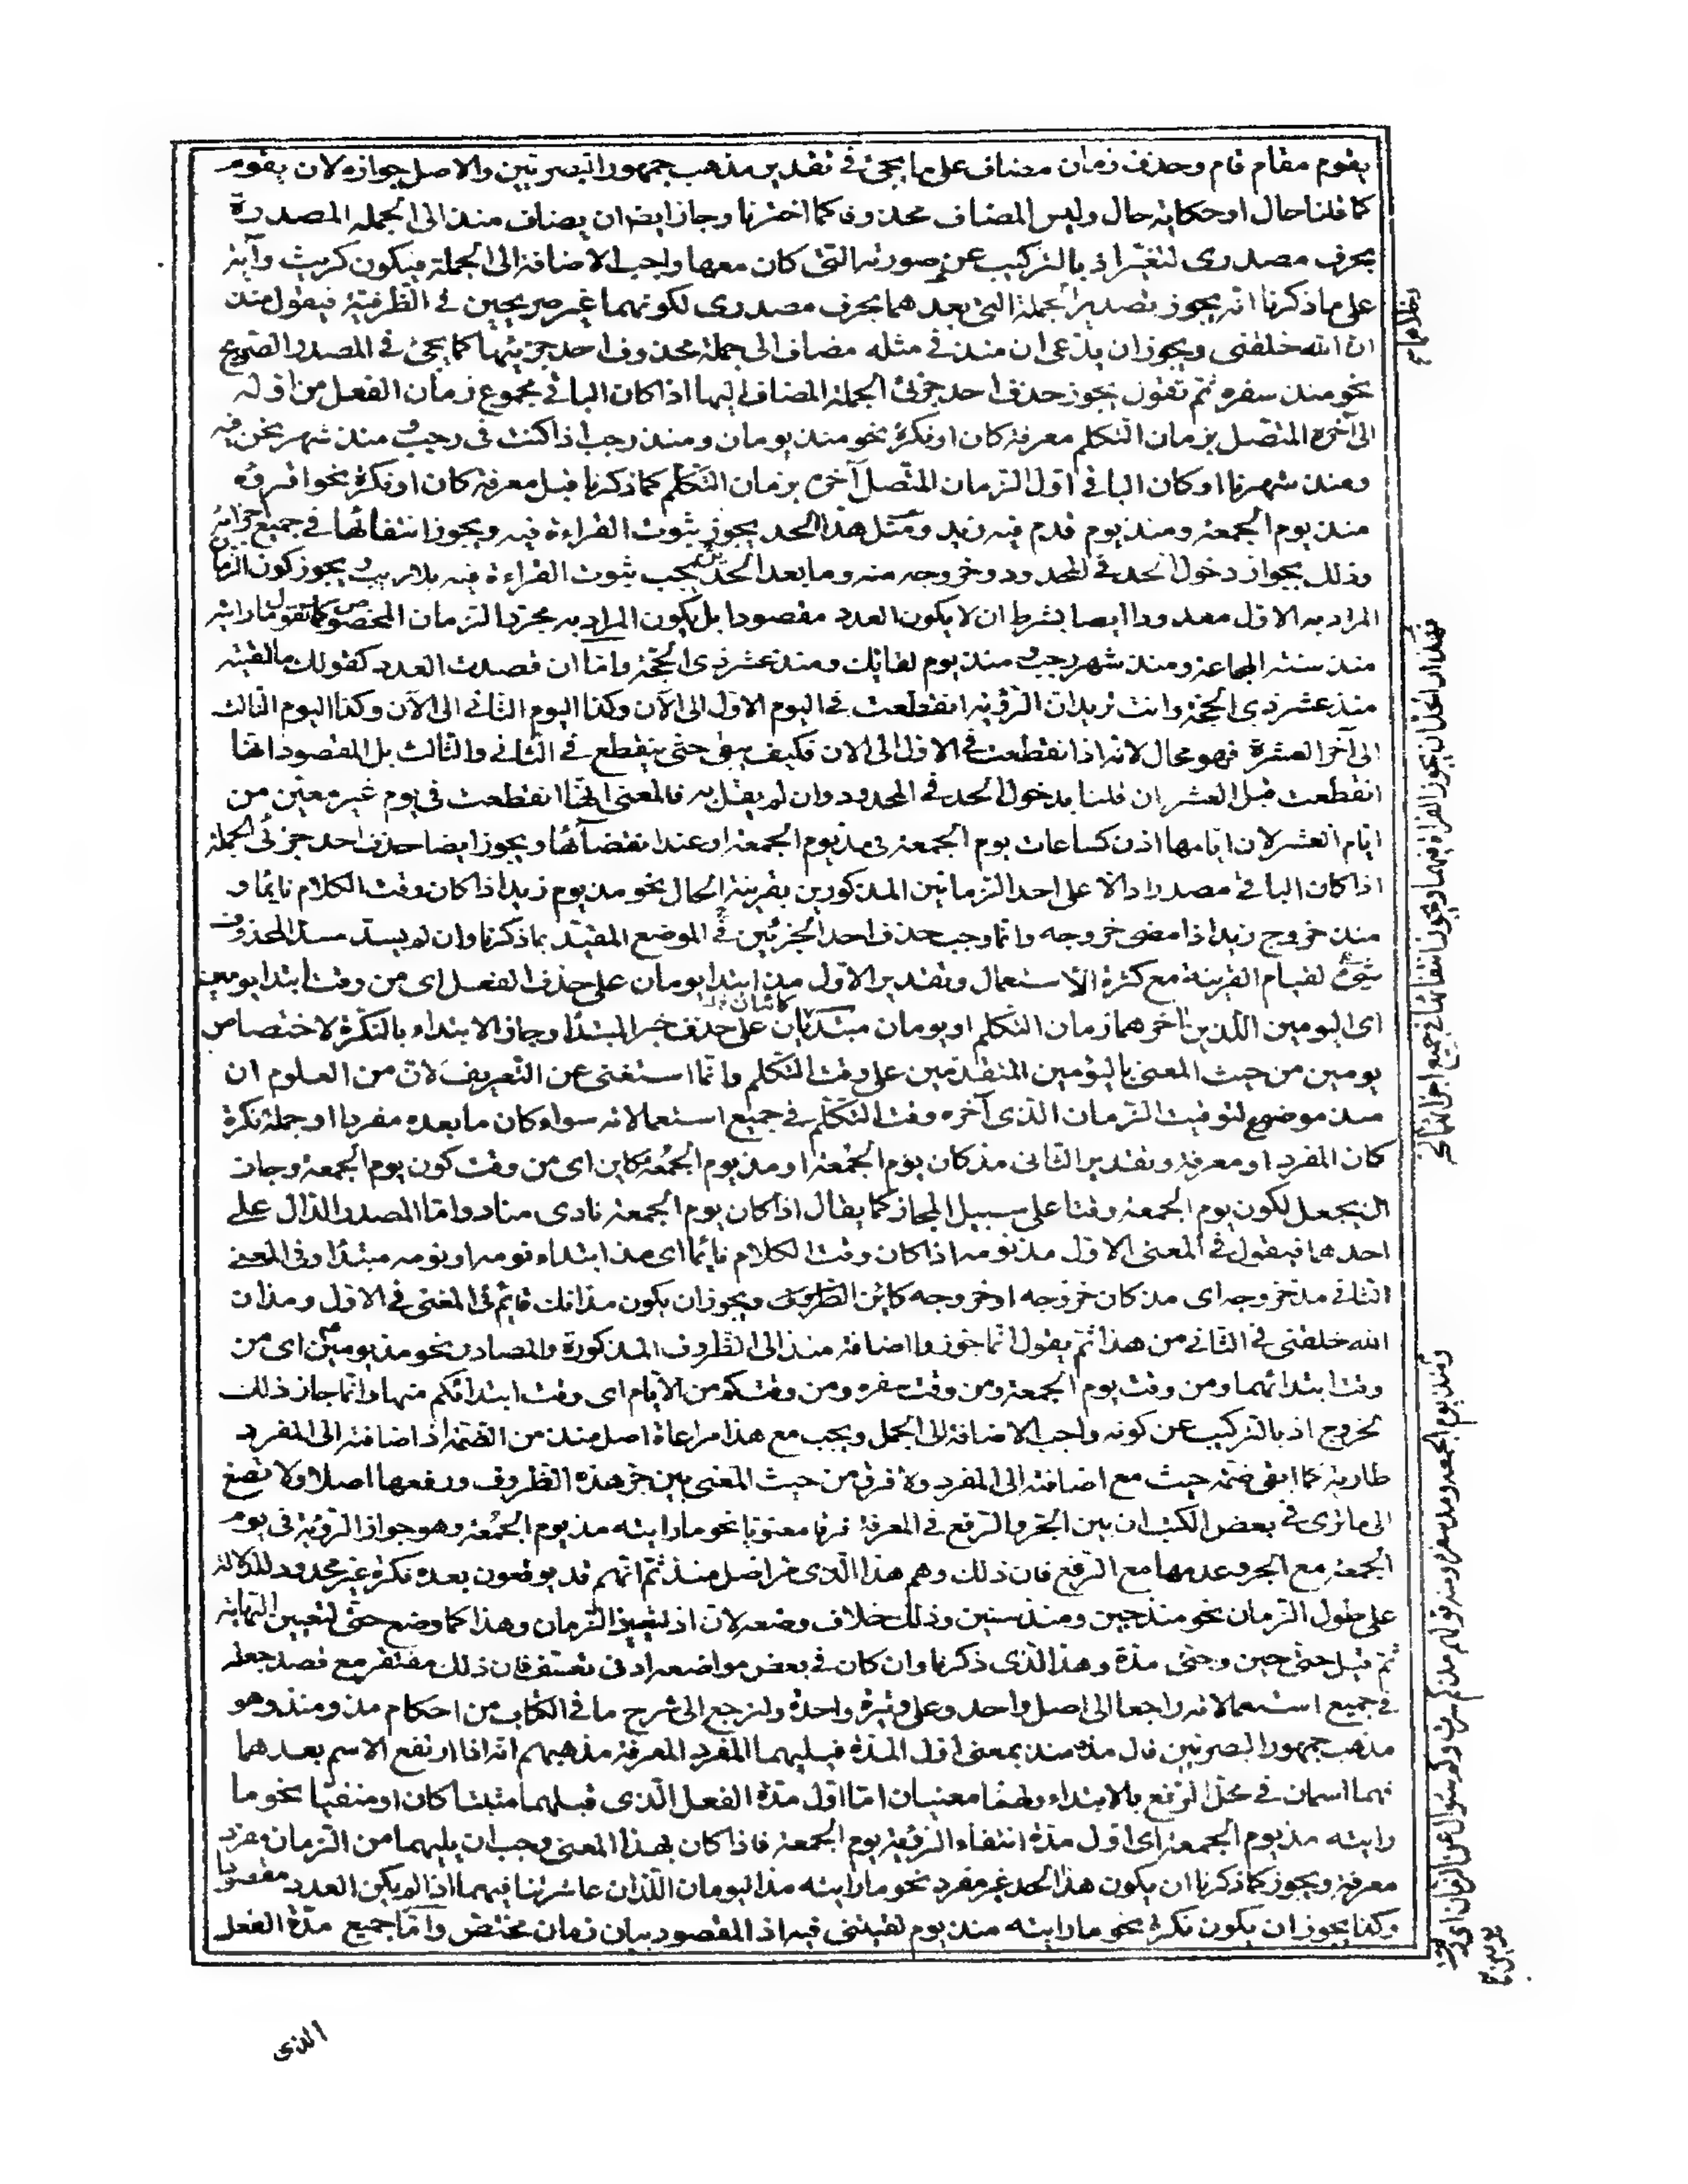 يقوم مقام قام وحذف زمان مضاف على ما يجئ فى تقدير مذهب جمهور البصريين والاصل جوازه لان يقوم
كما قلنا حال او حكاية حال وليس المضاف محذوفا كما اخترنا وجاز ايضا ان يضاف منذ الى الجملة المصدرة
بحرف مصدرى لتغير اذ بالتركيب عن صورته التى كان معها واجب الاضافة الى الجملة فيكون كريث وآية
على ما ذكرنا انه يجوز تصدير الجملة التى بعدهما بحرف مصدرى لكونهما غير صريحين فى الظرفية فيقول منذ
ان الله خلقنى ويجوز ان يدعى ان منذ فى مثله مضاف الى جملة محذوف احد جزئيها كما يجئ فى المصدر الصريح
نحو منذ سفره ثم تقول يجوز حذف احد جزئى الجملة المضاف اليها اذا كان الباقى مجموع زمان الفعل من اوله
الى آخره المتصل بزمان التكلم معرفة كان او نكرة نحو منذ يومان ومنذ رجب اذا كنت فى رجب ومنذ شهر نحن فيه
ومنذ شهرنا او كان الباقى اول الزمان المتصل آخره بزمان التكلم كما ذكرنا قبل معرفة كان او نكرة نحو اقرؤه
منذ يوم الجمعة ومنذ يوم قدم فيه زيد ومثل هذا الحد يجوز ثبوت القراءة فيه ويجوز انتفائها فى جميع اجزائه
وذلك بجواز دخول الحد فى المحدود وخروجه منه وما بعد الحد يجب ثبوت القراءة فيه بلا ريب ويجوز كون الزمان
المراد به الاول معدودا ايضا بشرط ان لا يكون العدد مقصودا بل يكون المراد به مجرد الزمان المخصوص كما تقول ما رايته
منذ سنة المجاعة ومنذ شهر رجب ومنذ يوم لقائك ومنذ عشر ذى الحجة واما ان قصدت العدد كقولك ما لقيته
منذ عشر ذى الحجة وانت تريد ان الرؤية انقطعت فى اليوم الاول الى الآن وكذا اليوم الثانى الى الآن وكذا اليوم الثالث
الى آخر العشرة فهو محال لانه اذا انقطعت فى الاول الى الان فكيف يبقى حتى ينقطع فى الثانى والثالث بل المقصود انها
انقطعت قبل العشر ان قلنا بدخول الحد فى المحدود وان لم يقل به فالمعنى انها انقطعت فى يوم غير معين من
ايام العشر لان ايامها اذن كساعات يوم الجمعة فى مذ يوم الجمعة او عند انقضائها ويجوز ايضا حذف احد جزئى الجملة
اذا كان الباقى مصدرا دالا على احد الزمانين المذكورين بقرينة الحال نحو مذ يوم زيد اذا كان وقت الكلام نايما و
منذ خروج زيد اذا مضى خروجه وانما وجب حذف احد الجزئين فى الموضع المقيد بما ذكرنا وان لم يسد مسد المحذوف
شئ لقيام القرينة مع كثرة الاستعمال وتقدير الاول مذ ابتدا يومان على حذف الفعل اى من وقت ابتدا يومين
اى اليومين اللذين آخرهما زمان التكلم او يومان مبتديان على حذف خبر المبتدا وجاز الابتداء بالنكرة لاختصاص
كائنان
يومين من حيث المعنى باليومين المتقدمين على وقت التكلم وانما استغنى عن التعريف لان من المعلوم ان
منذ موضع لتوقيت الزمان الذى آخره وقت التكلم فى جميع استعمالاته سواء كان ما بعده مفردا او جملة نكرة
كان المفرد او معرفة وتقدير الثانى مذ كان يوم الجمعة او مذ يوم الجمعة كاين اى من وقت كون يوم الجمعة وجاز
ان يجعل لكون يوم الجمعة وقتا على سبيل المجاز كما يقال اذا كان يوم الجمعة نادى مناد واما المصدر الدال على
احدهما فيقول فى المعنى الاول مذ نومه اذا كان وقت الكلام نايما اى مذ ابتداء نومه او نومه مبتدا وفى المعنى
الثانى مذ خروجه اى مذ كان خروجه او خروجه كاين ويجوز ان يكون مذ انك قايم فى المعنى فى الاول ومذ ان
الله خلقنى فى الثانى من هذا ثم يقول انما جوزوا اضافة منذ الى الظروف المذكورة والمصادر نحو مذ يومين اى من
وقت ابتدائهما ومن وقت يوم الجمعة ومن وقت سفره ومن وقت كم من الايام اى وقت ابتداء كم منها وانما جاز ذلك
لخروج اذ بالتركيب عن كونه واجب الاضافة الى الجمل ويجب مع هذا مراعاة اصل منذ من الضمة اذ اضافته الى المفرد
طارية كما ابقى ضمة حيث مع اضافته الى المفرد ولا فرق من حيث المعنى بين جر هذه الظروف ورفعها اصلا ولا تصغ
الى ما ترى فى بعض الكتب ان بين الجر والرفع فى المعرفة فرقا معنويا نحو ما رايته مذ يوم الجمعة وهو جواز الرؤية فى يوم
الجمعة مع الجر وعدمها مع الرفع فان ذلك وهم هذا الذى مر اصل منذ ثم انهم قد يوقعون بعده نكرة غير محدود للدلالة
على طول الزمان نحو منذ حين ومنذ سنين وذلك خلاف وضعه لان اذ لتعيين الزمان وهذا كما وضع حتى لتعيين النهاية
ثم قيل حتى حين وحتى مدة وهذا الذى ذكرنا وان كان فى بعض مواضعه ادنى تعسف فان ذلك مغتفر مع قصد جعله
فى جميع استعمالاته راجعا الى اصل واحد وعلى وتيرة واحدة ولنرجع الى شرح ما فى الكتاب من احكام مذ ومنذ وهو
مذهب جمهور البصريين قال مذ ومنذ بمعنى اول المدة فيليهما المفرد المعرفة مذهبهم انه اذا ارتفع الاسم بعدهما
فهما اسمان فى محل الرفع بالابتداء ولهما معنيان اما اول مدة الفعل الذى قبلهما مثبتا كان او منفيا نحو ما
رايته مذ يوم الجمعة اى اول مدة انتفاء الرؤية يوم الجمعة فاذا كان بهذا المعنى وجب ان يليهما من الزمان مفرد
معرفة ويجوز كما ذكرنا ان يكون هذا الحد غير مفرد نحو ما رايته مذ اليومان اللذان عاشرتنا فيهما اذا لم يكن العدد مقصودا
وكذا يجوز ان يكون نكرة نحو ما رايته منذ يوم لقيتنى فيه اذ المقصود بيان زمان مختص واما جميع مدة الفعل
الذى